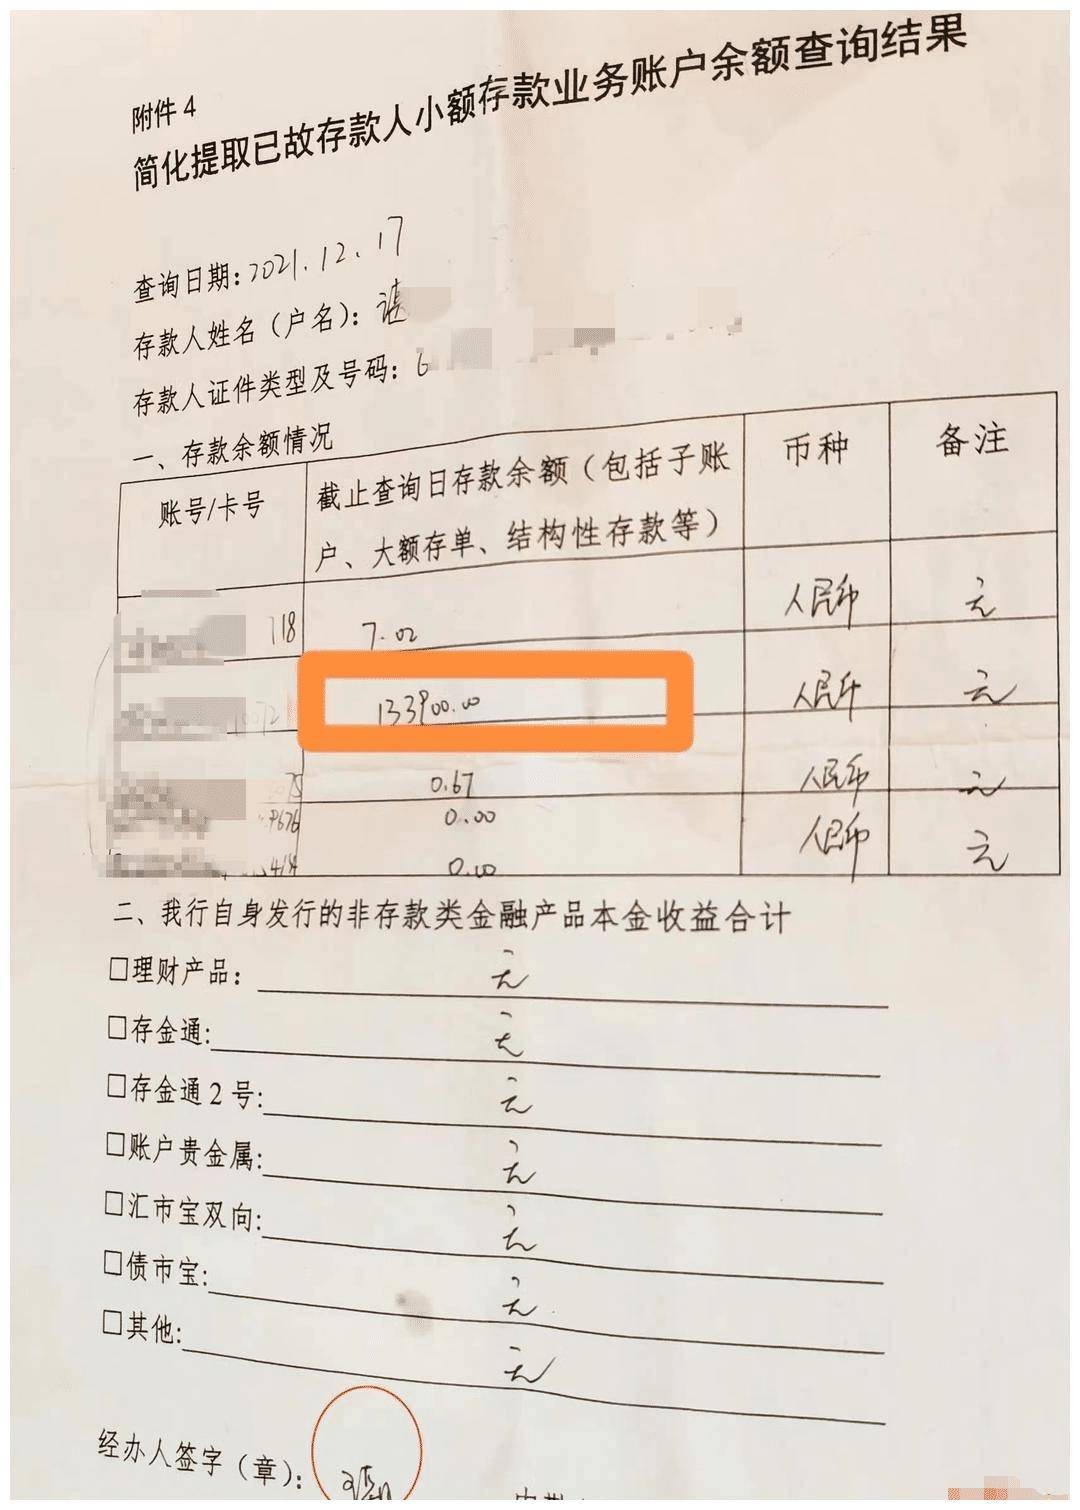 附件4
简化提取已故存款人小额存款业务账户余额查询结果
查询日期:2021.12.17
存款人姓名（户名）：谌
存款人证件类型及号码：6
一、存款余额情况
账号/卡号 截止查询日存款余额（包括子账户、大额存单、结构性存款等） 币种 备注
118 7.02 人民币 元
133900.00 人民币 元
75 0.67 人民币 元
9676 0.00
414 0.00 人民币 元
二、我行自身发行的非存款类金融产品本金收益合计
□理财产品： 元
□存金通: 元
□存金通2号: 元
□账户贵金属: 元
□汇市宝双向: 元
□债市宝: 元
□其他: 元
经办人签字（章）：